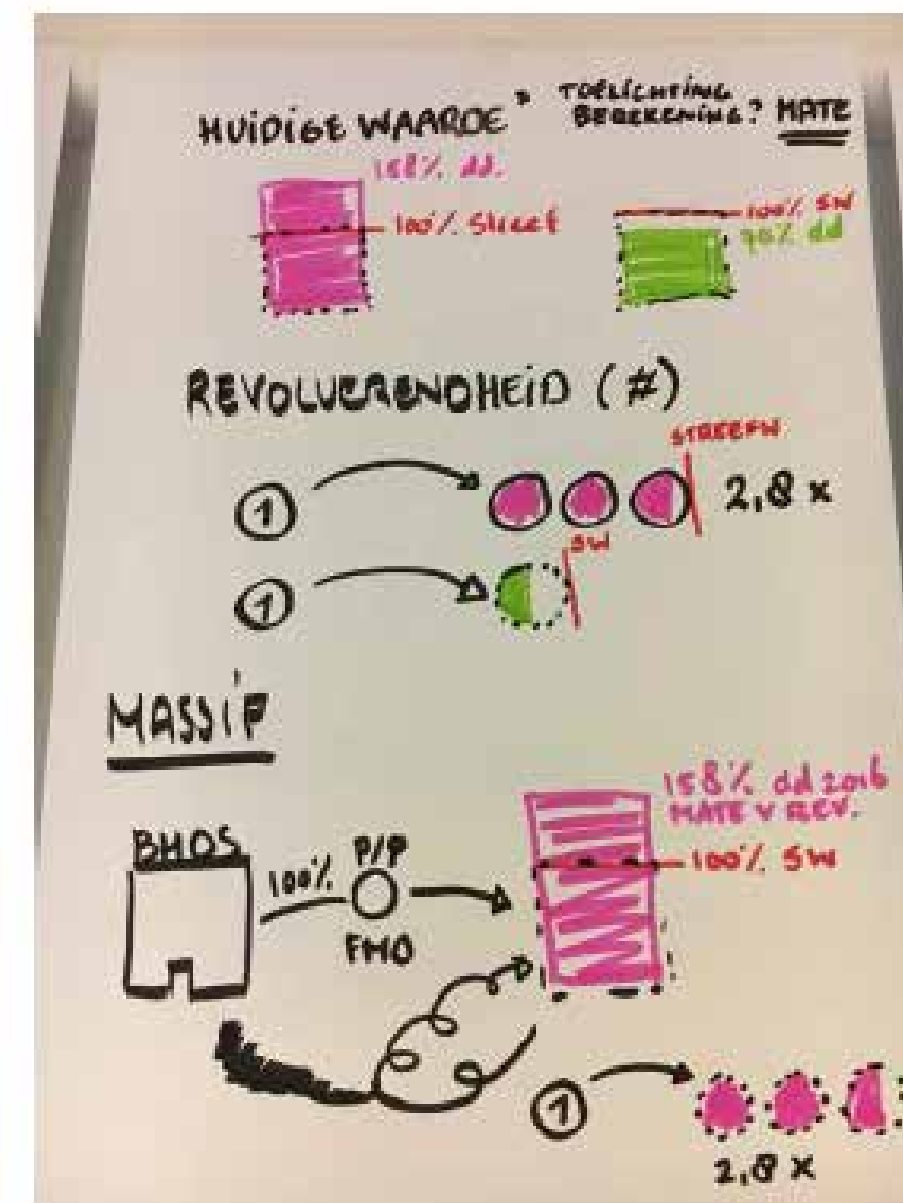 HUIDIGE WAARDE
TOELICHTING
BEREKENING? MATE
158% dd.
100% Streef
100% SW
90% dd
REVOLVERENDHEID (#)
STREEFW.
1
2,8 x
SW
1
MASSIF
158% dd 2016
MATE V REV.
BHOS
P/P
100%
100% SW
FMO
1
2,8 x